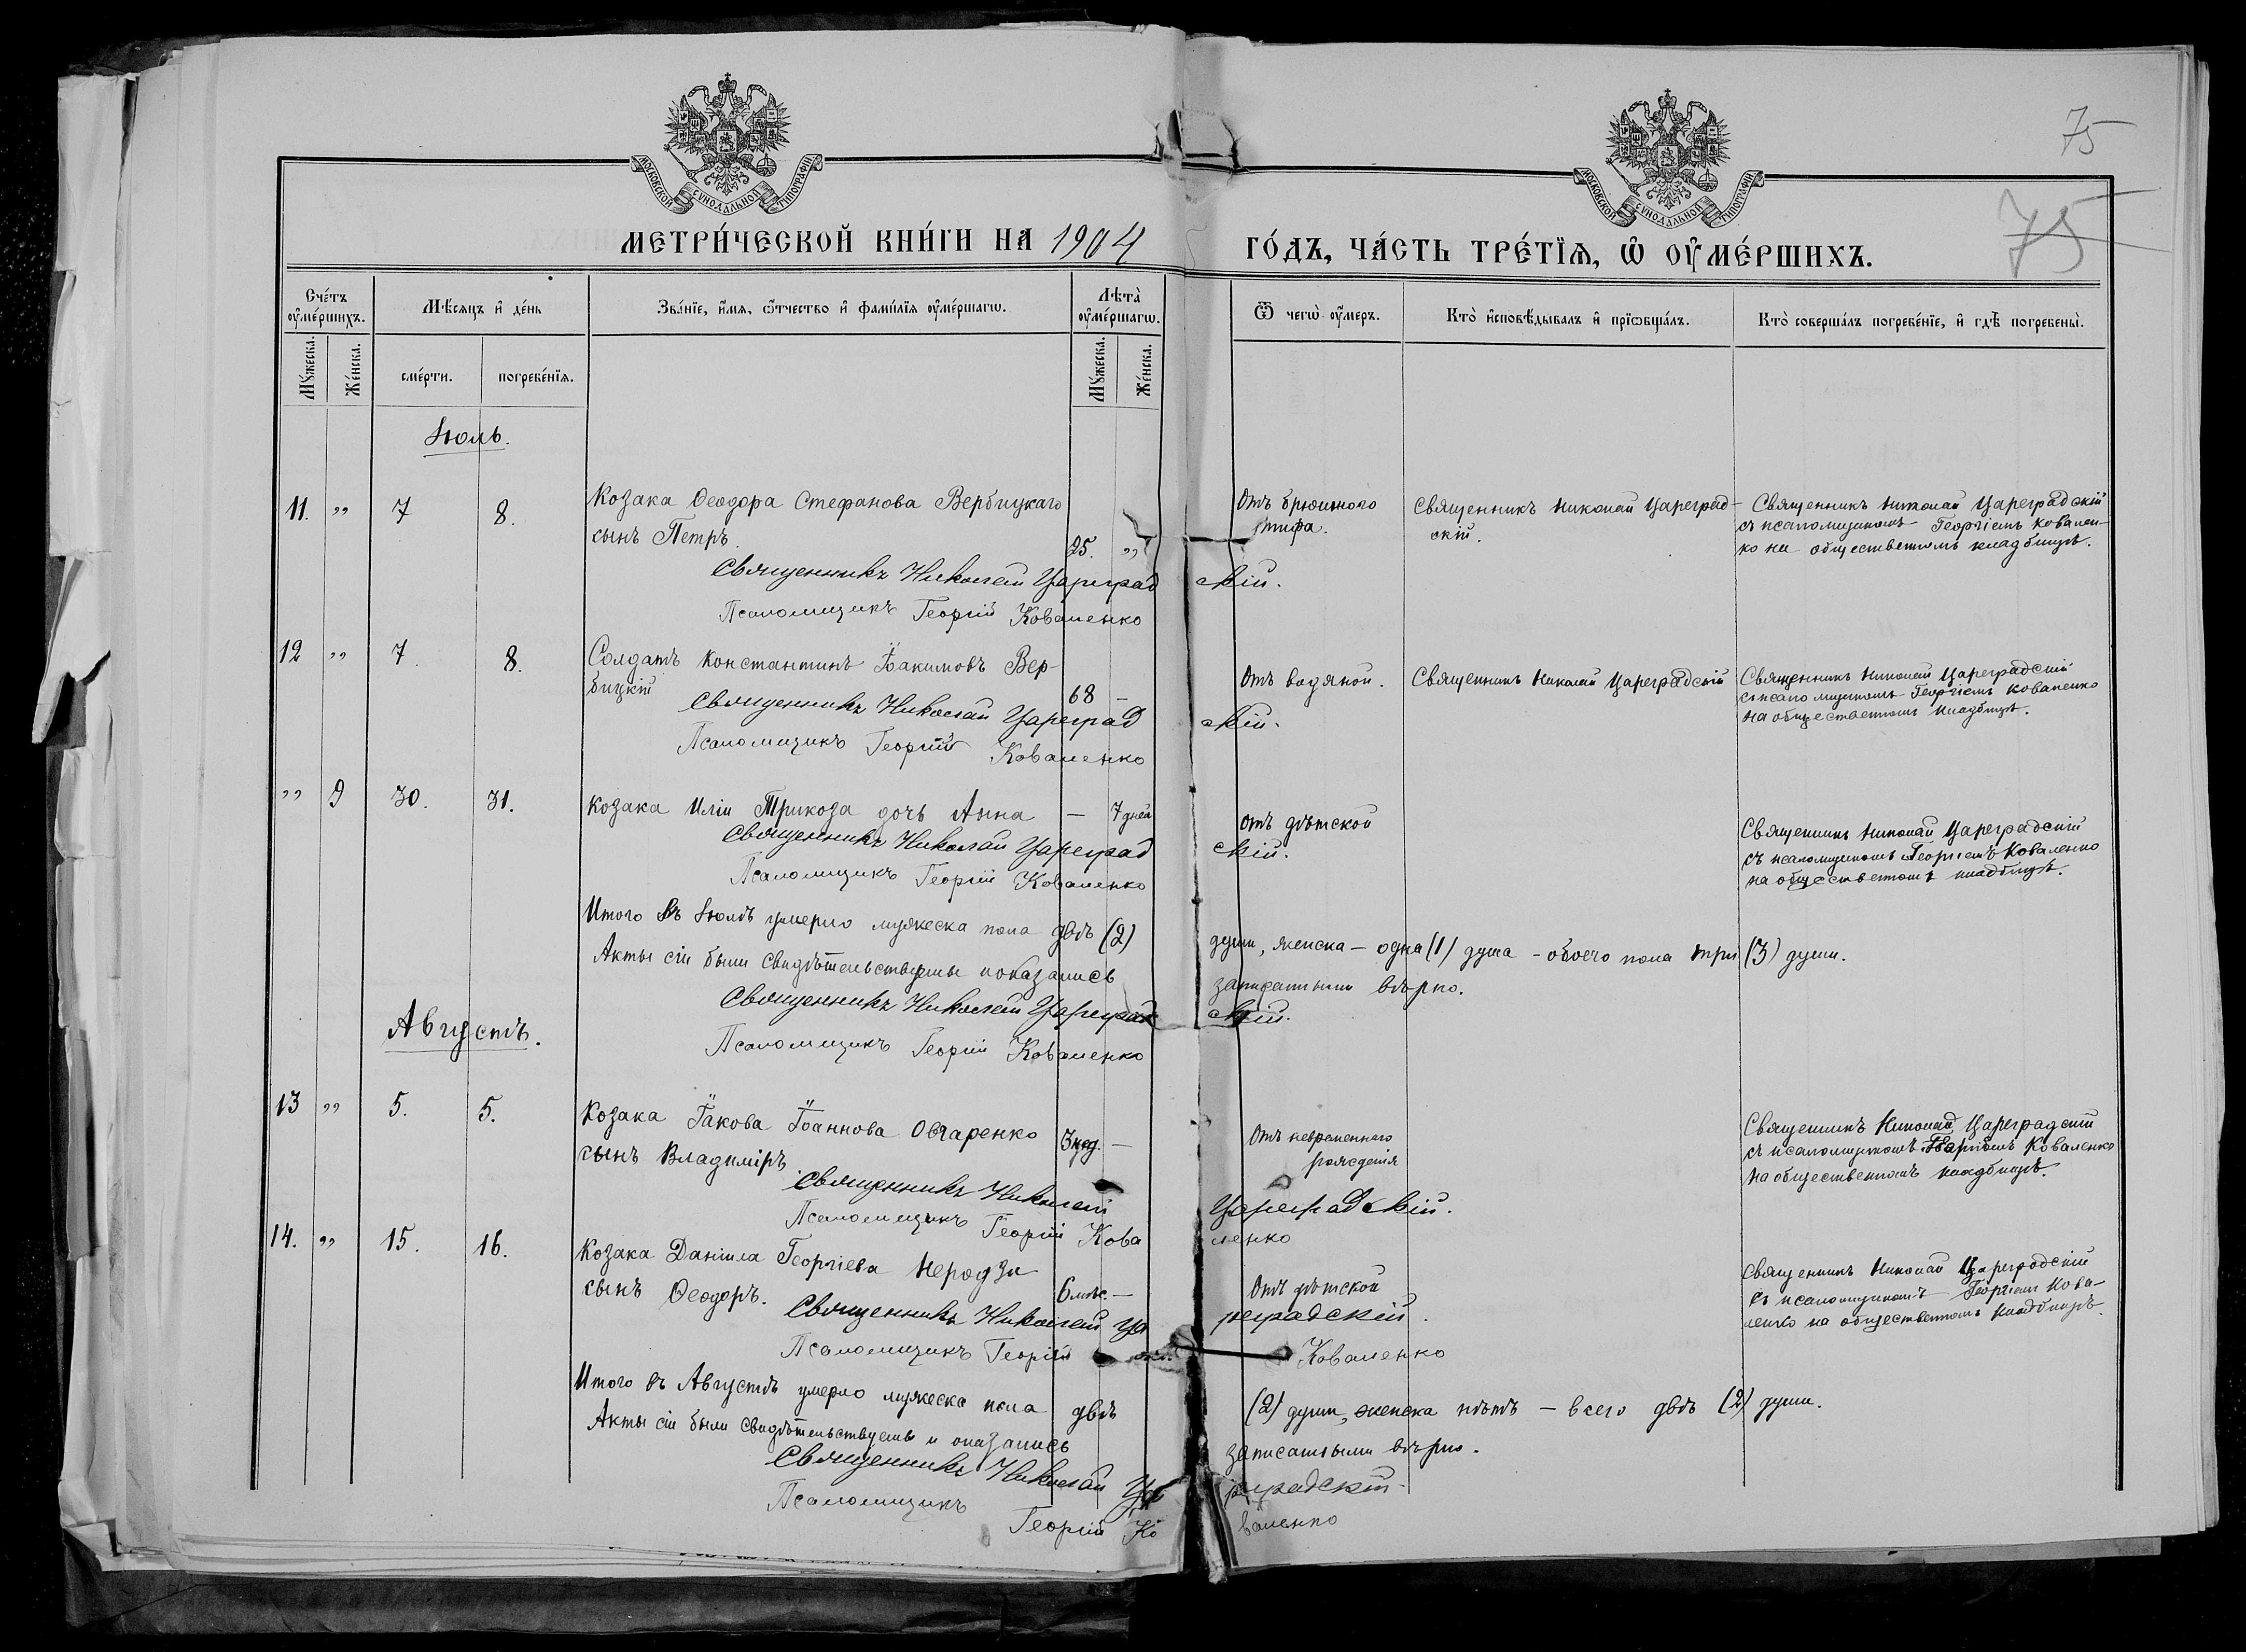 75
МОСКОВСКОЙ СѴНОДАЛЬНОЙ ТИПОГРАФІИ
МОСКОВСКОЙ СѴНОДАЛЬНОЙ ТИПОГРАФІИ
75
МЕТРИ́ЧЕСКОЙ КНИ́ГИ НА 1904 ГО́ДЪ, ЧА́СТЬ ТРЕ́ТЇѦ, Ѡ ОУ҆МЕ́РШИХЪ.
Сче́тъ оу҆ме́ршихъ.
Мѣ́сѧцъ и҆ де́нь
Зва́нїе, и҆́мѧ, ѻ҆́тчество и҆ фами́лїѧ оу҆ме́ршагѡ.
Лѣта̀ оу҆ме́ршагѡ.
Ѿ чегѡ̀ оу҆́меръ.
Кто̀ и҆сповѣ́дывалъ и҆ прїѡбща́лъ.
Кто̀ соверша́лъ погребе́нїе, и҆ гдѣ̀ погребены̀.
Мꙋ́жеска.
Же́нска.
сме́рти.
погребе́нїѧ.
Мꙋ́жеска.
Же́нска.
Іюль.
11. „ 7 8. Козака Ѳеодора Стефанова Вербицкаго
сынъ Петръ. 25. „
Отъ брюшного
тифа.
Священникъ Николай Цареград-
скій.
Священникъ Николай Цареградскій
съ псаломщикомъ Георгіемъ Ковален-
ко на общественномъ кладбищѣ.
Священникъ Николай Цареградскій.
Псаломщикъ Георгій Коваленко
12 „ 7. 8. Солдатъ Константинъ Іоакимовъ Вер-
бицкій 68 —
Отъ водяной.
Священникъ Николай Цареградскій
Священникъ Николай Цареградскій
съ псаломщикомъ Георгіемъ Коваленко
на общественномъ кладбищѣ.
Священникъ Николай Цареградскій.
Псаломщикъ Георгій Коваленко
„ 9 30. 31. Козака Иліи Трикоза дочь Анна — 7 дней
Отъ дѣтской
Священникъ Николай Цареградскій
съ псаломщикомъ Георгіемъ Коваленко
на общественномъ кладбищѣ.
Священникъ Николай Цареградскій.
Псаломщикъ Георгій Коваленко
Итого въ Іюлѣ умерло мужеска пола двѣ (2) души, женска — одна (1) душа — обоего пола три (3) души.
Акты сіи были свидѣтельствуемы и оказались записанными вѣрно.
Священникъ Николай Цареградскій.
Псаломщикъ Георгій Коваленко
Августъ.
13 „ 5. 5. Козака Іакова Іоаннова Овчаренко
сынъ Владиміръ. 3 нед. —
Отъ невременного
рожденія
Священникъ Николай Цареградскій
съ псаломщикомъ Георгіемъ Коваленко
на общественномъ кладбищѣ.
Священникъ Николай Цареградскій.
Псаломщикъ Георгій Коваленко
14. „ 15. 16. Козака Даніила Георгіева
сынъ Ѳеодоръ. 6 мѣс. —
Отъ дѣтской
Священникъ Николай Цареградскій
съ псаломщикомъ Георгіемъ Кова-
ленко на общественномъ кладбищѣ.
Священникъ Николай Цареградскій.
Псаломщикъ Георгій Коваленко
Итого въ Августѣ умерло мужеска пола двѣ (2) души, женска нѣтъ — всего двѣ (2) души.
Акты сіи были свидѣтельствуемы и оказались записанными вѣрно.
Священникъ Николай Цареградскій.
Псаломщикъ Георгій Коваленко